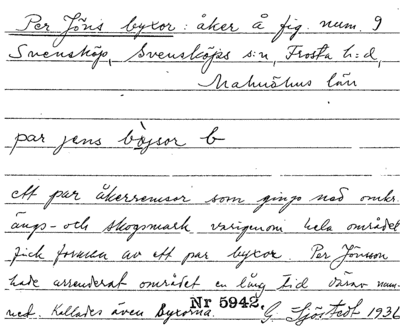 Per Jöns byxor: åker å fig. num. 9
Svensköp, Svensköps s:n, Frosta h:d,
Malmöhus län
par jens bòjsor b
ett par åkerremsor som gingo ned omkr.
ängs- och skogsmark varigenom hela området
fick formen av ett par byxor. Per Jönsson
hade arrenderat området en lång tid därav nam-
net. Kallades även Byxorna.
Nr 5942.
G. Sjöstedt 1936